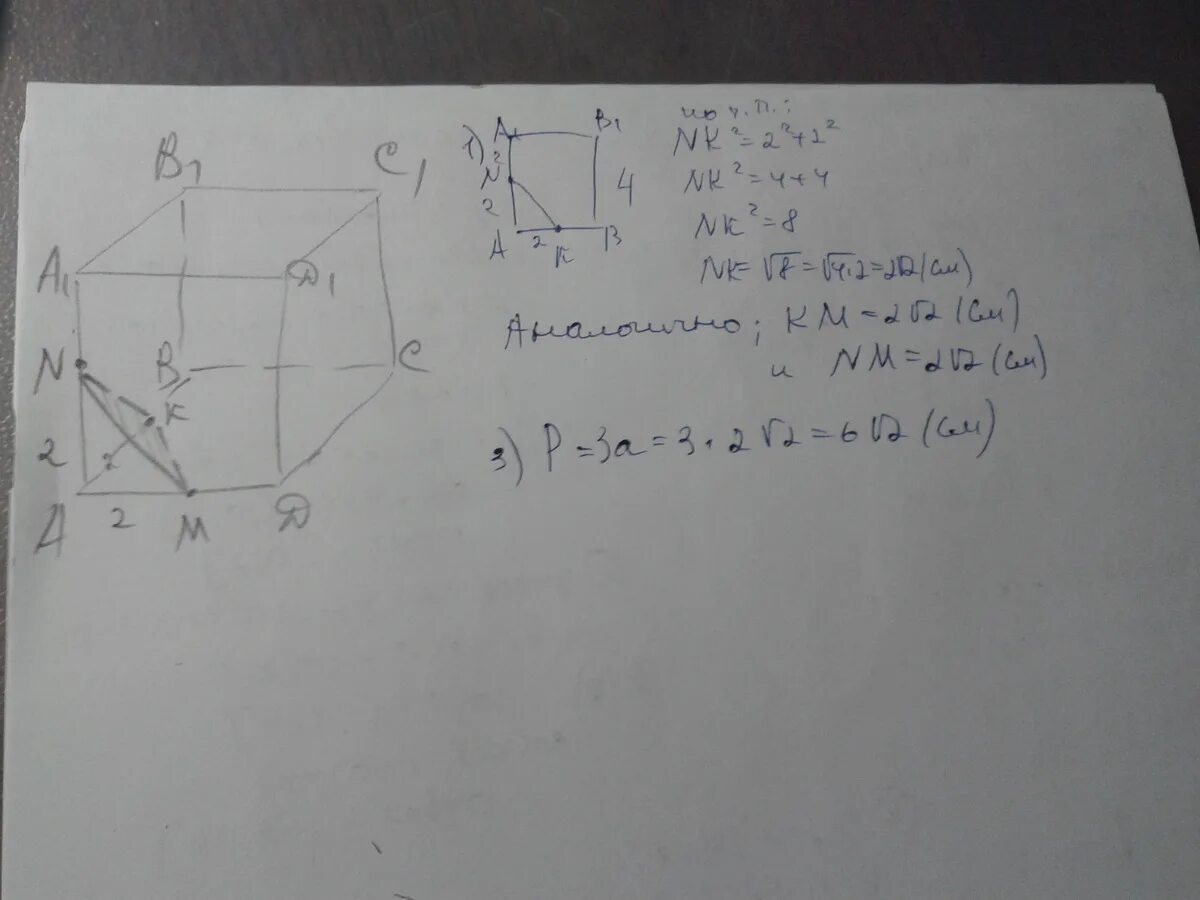 B₁
C₁
A₁
D₁
N
B
C
K
2
2
A
2
M
D
1)
A₁
B₁
2
N
2
4
A
2
K
B
по т.П.:
NK²=2²+2²
NK²=4+4
NK²=8
NK=√8=√4·2=2√2(см)
Аналоично; KM=2√2(см)
и NM=2√2(см)
3) P=3a=3·2√2=6√2(см)